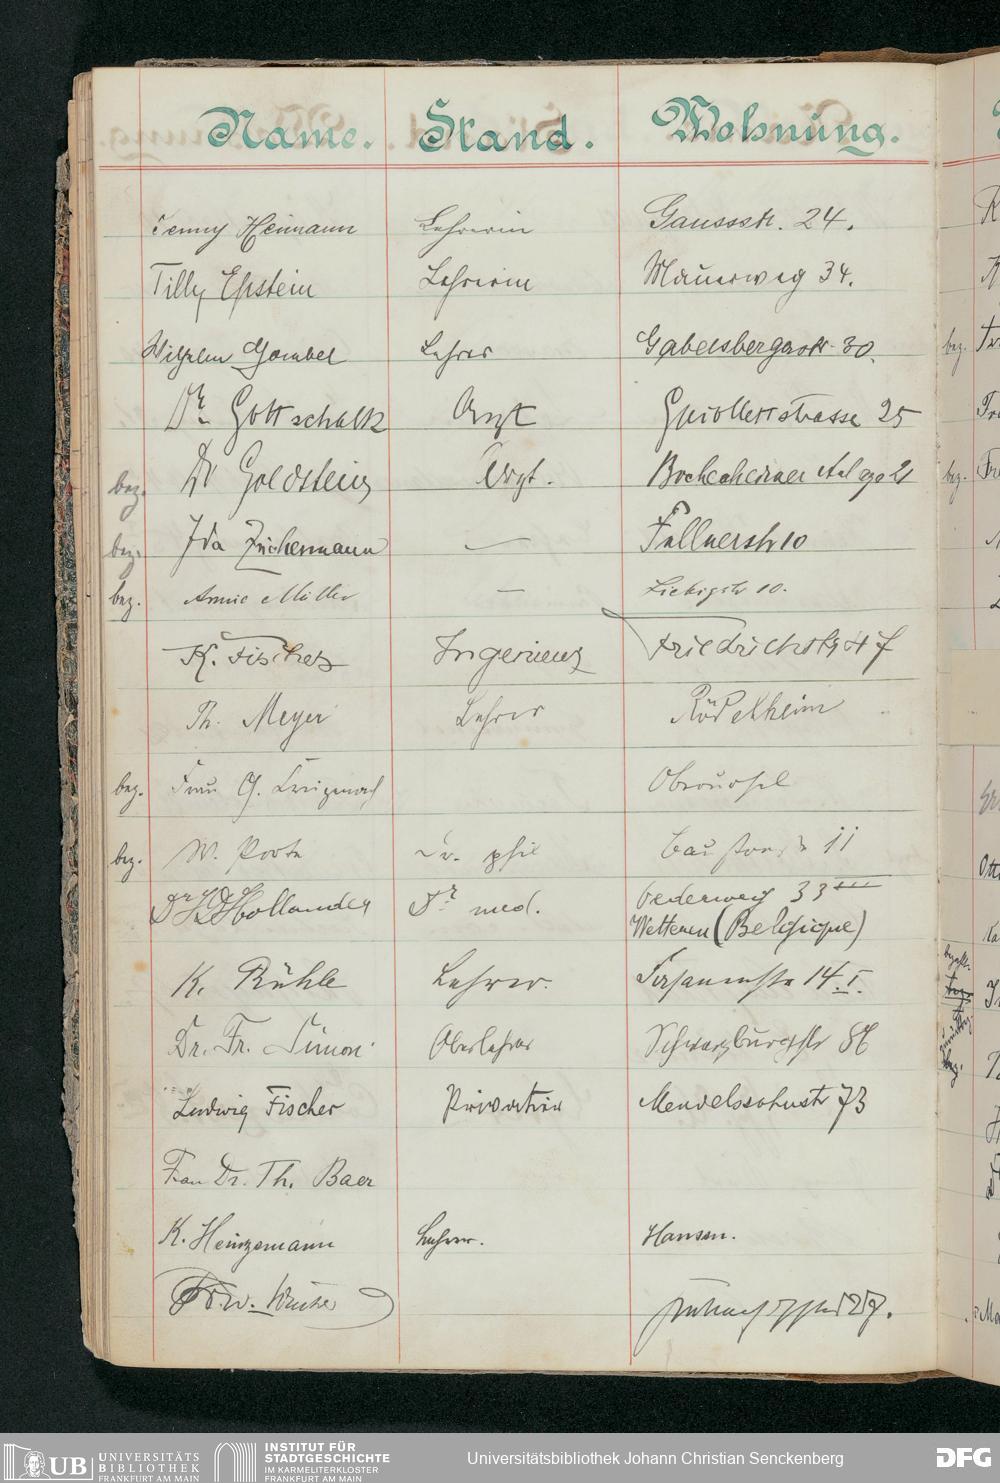 Name. Stand. Wohnung.
Jenny Heimann Lehrerin Gaussstr. 24.
Tilly Epstein Lehrerin Mauerweg 34.
Wilhelm Gombel Lehrer Gabelsbergerstr. 30.
Dr. Gottschalk Arzt Guiollettstrasse 25
bez. Dr Goldstein Arzt. Bockenheimer
bez. Ida Zuckermann — Falknerstr 10
bez. Annie Müller — Liebigstr 10.
K. Fischer Ingenieur Friedrichstr 47
Th. Meyer Lehrer Rödelheim
bez. Frau G. Oberursel
bez. W. Dr. phil 11
Dr Hollander Dr. med. Oederweg 33
Wetteren (Belgique)
K. Rühle Lehrer. 14 I.
Dr. Fr. Simon Oberlehrer Schwarzburgstr 86
Ludwig Fischer Privatier Mendelssohnstr 73
Frau Dr. Th. Baer
K. Heinzemann Lehrer. Hansen.
UB UNIVERSITÄTS
BIBLIOTHEK
FRANKFURT AM MAIN
INSTITUT FÜR
STADTGESCHICHTE
IM KARMELITERKLOSTER
FRANKFURT AM MAIN
Universitätsbibliothek Johann Christian Senckenberg
DFG